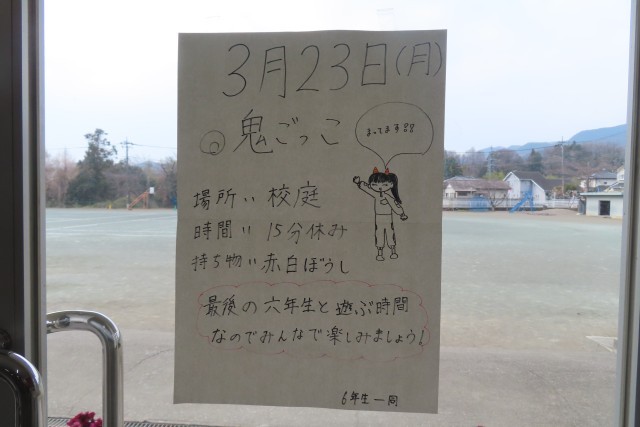 3月23日(月)
鬼ごっこ
まってます!!
場所:校庭
時間:15分休み
持ち物:赤白ぼうし
最後の六年生と遊ぶ時間
なのでみんなで楽しみましょう!
6年生一同